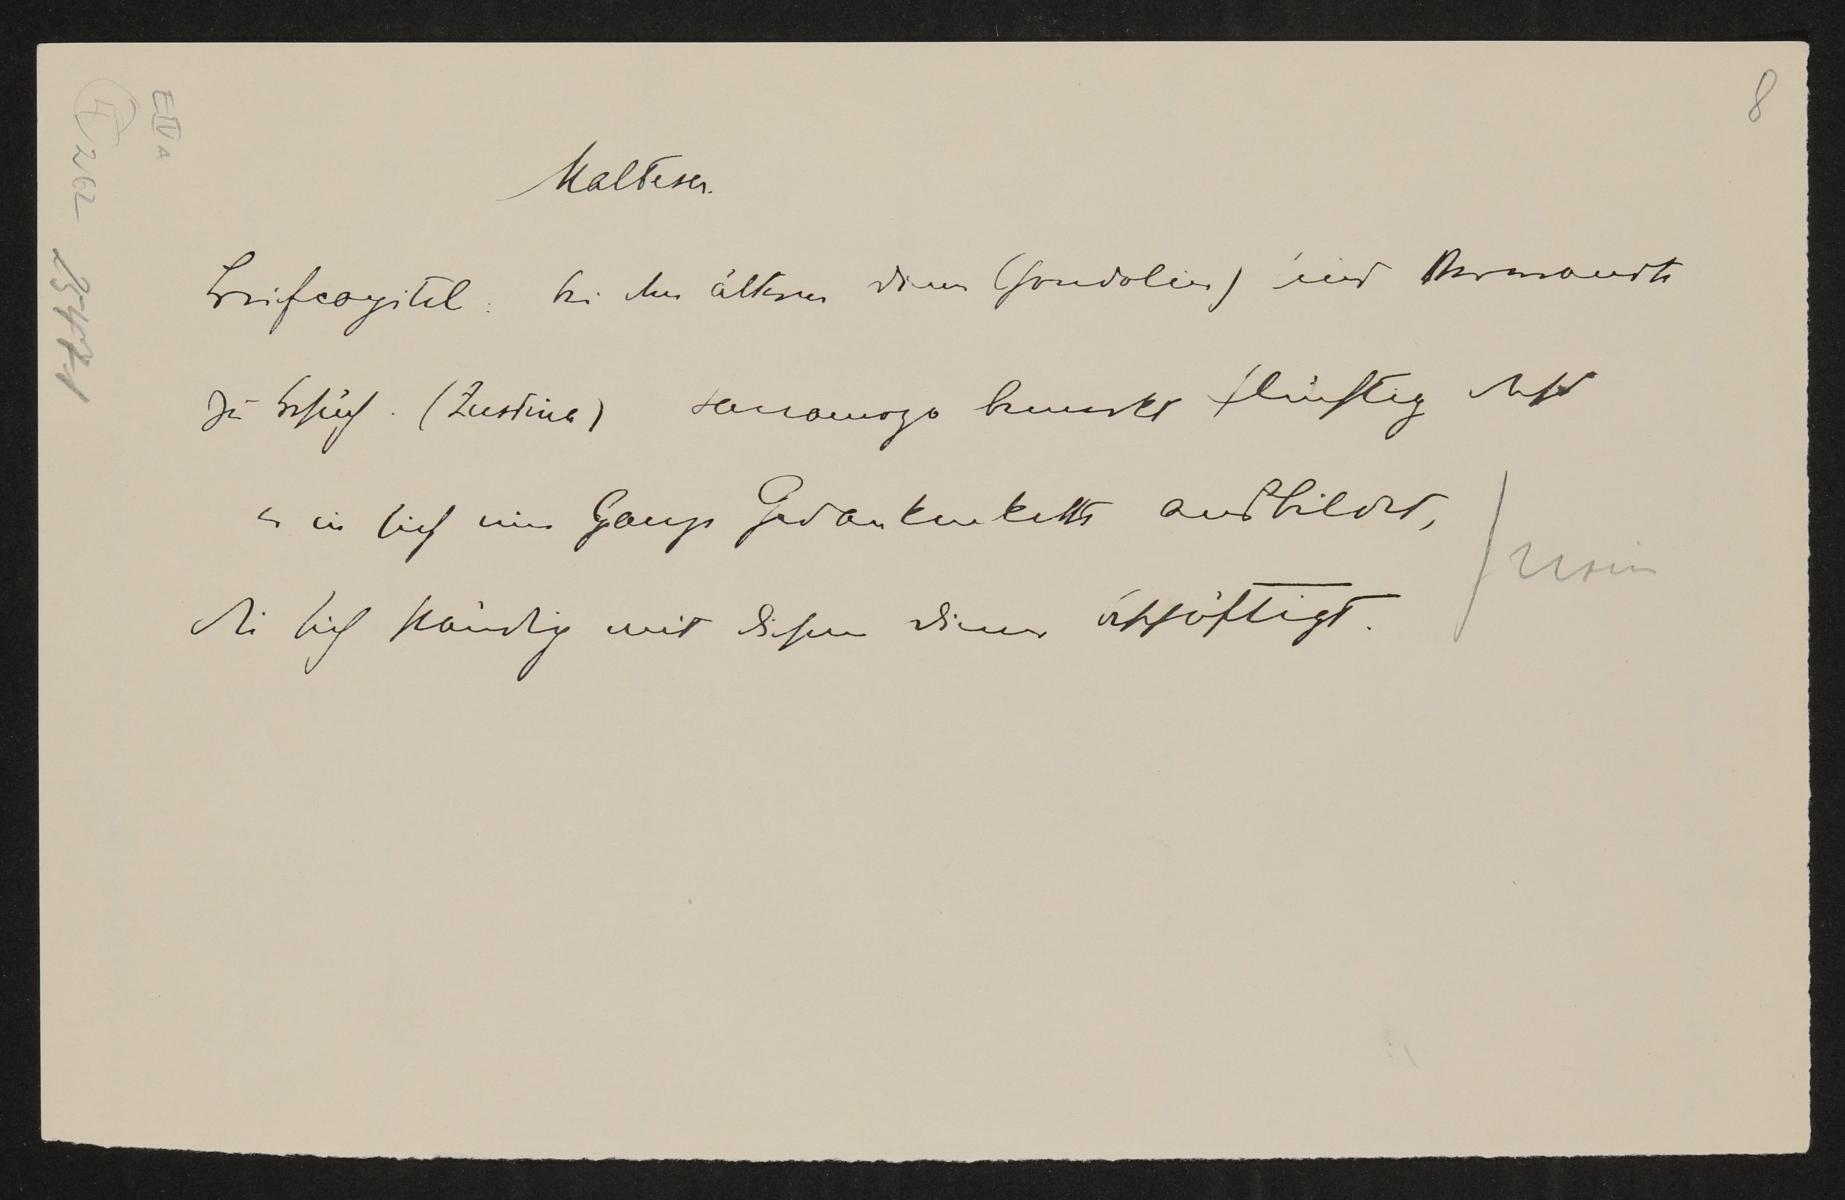 8
E IV A
4
262
25477.1
Malteser.
Briefcapitel: bei der älteren Dame (Gondolier) eine Verwandte
zu Besuch. (Zustina) Sacramozo bemerkt flüchtig dass
er in sich eine Ganze Gedankenkette ausbildet,
die sich ständig mit dieser Dame beschäftigt.